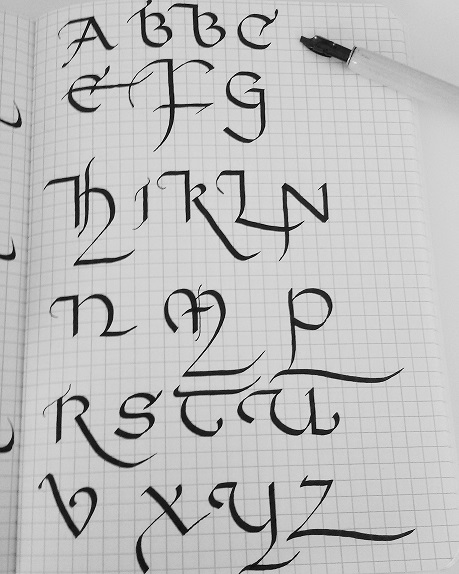 A B B C
E F G
H I K L N
N M P
R S T U
V X Y Z